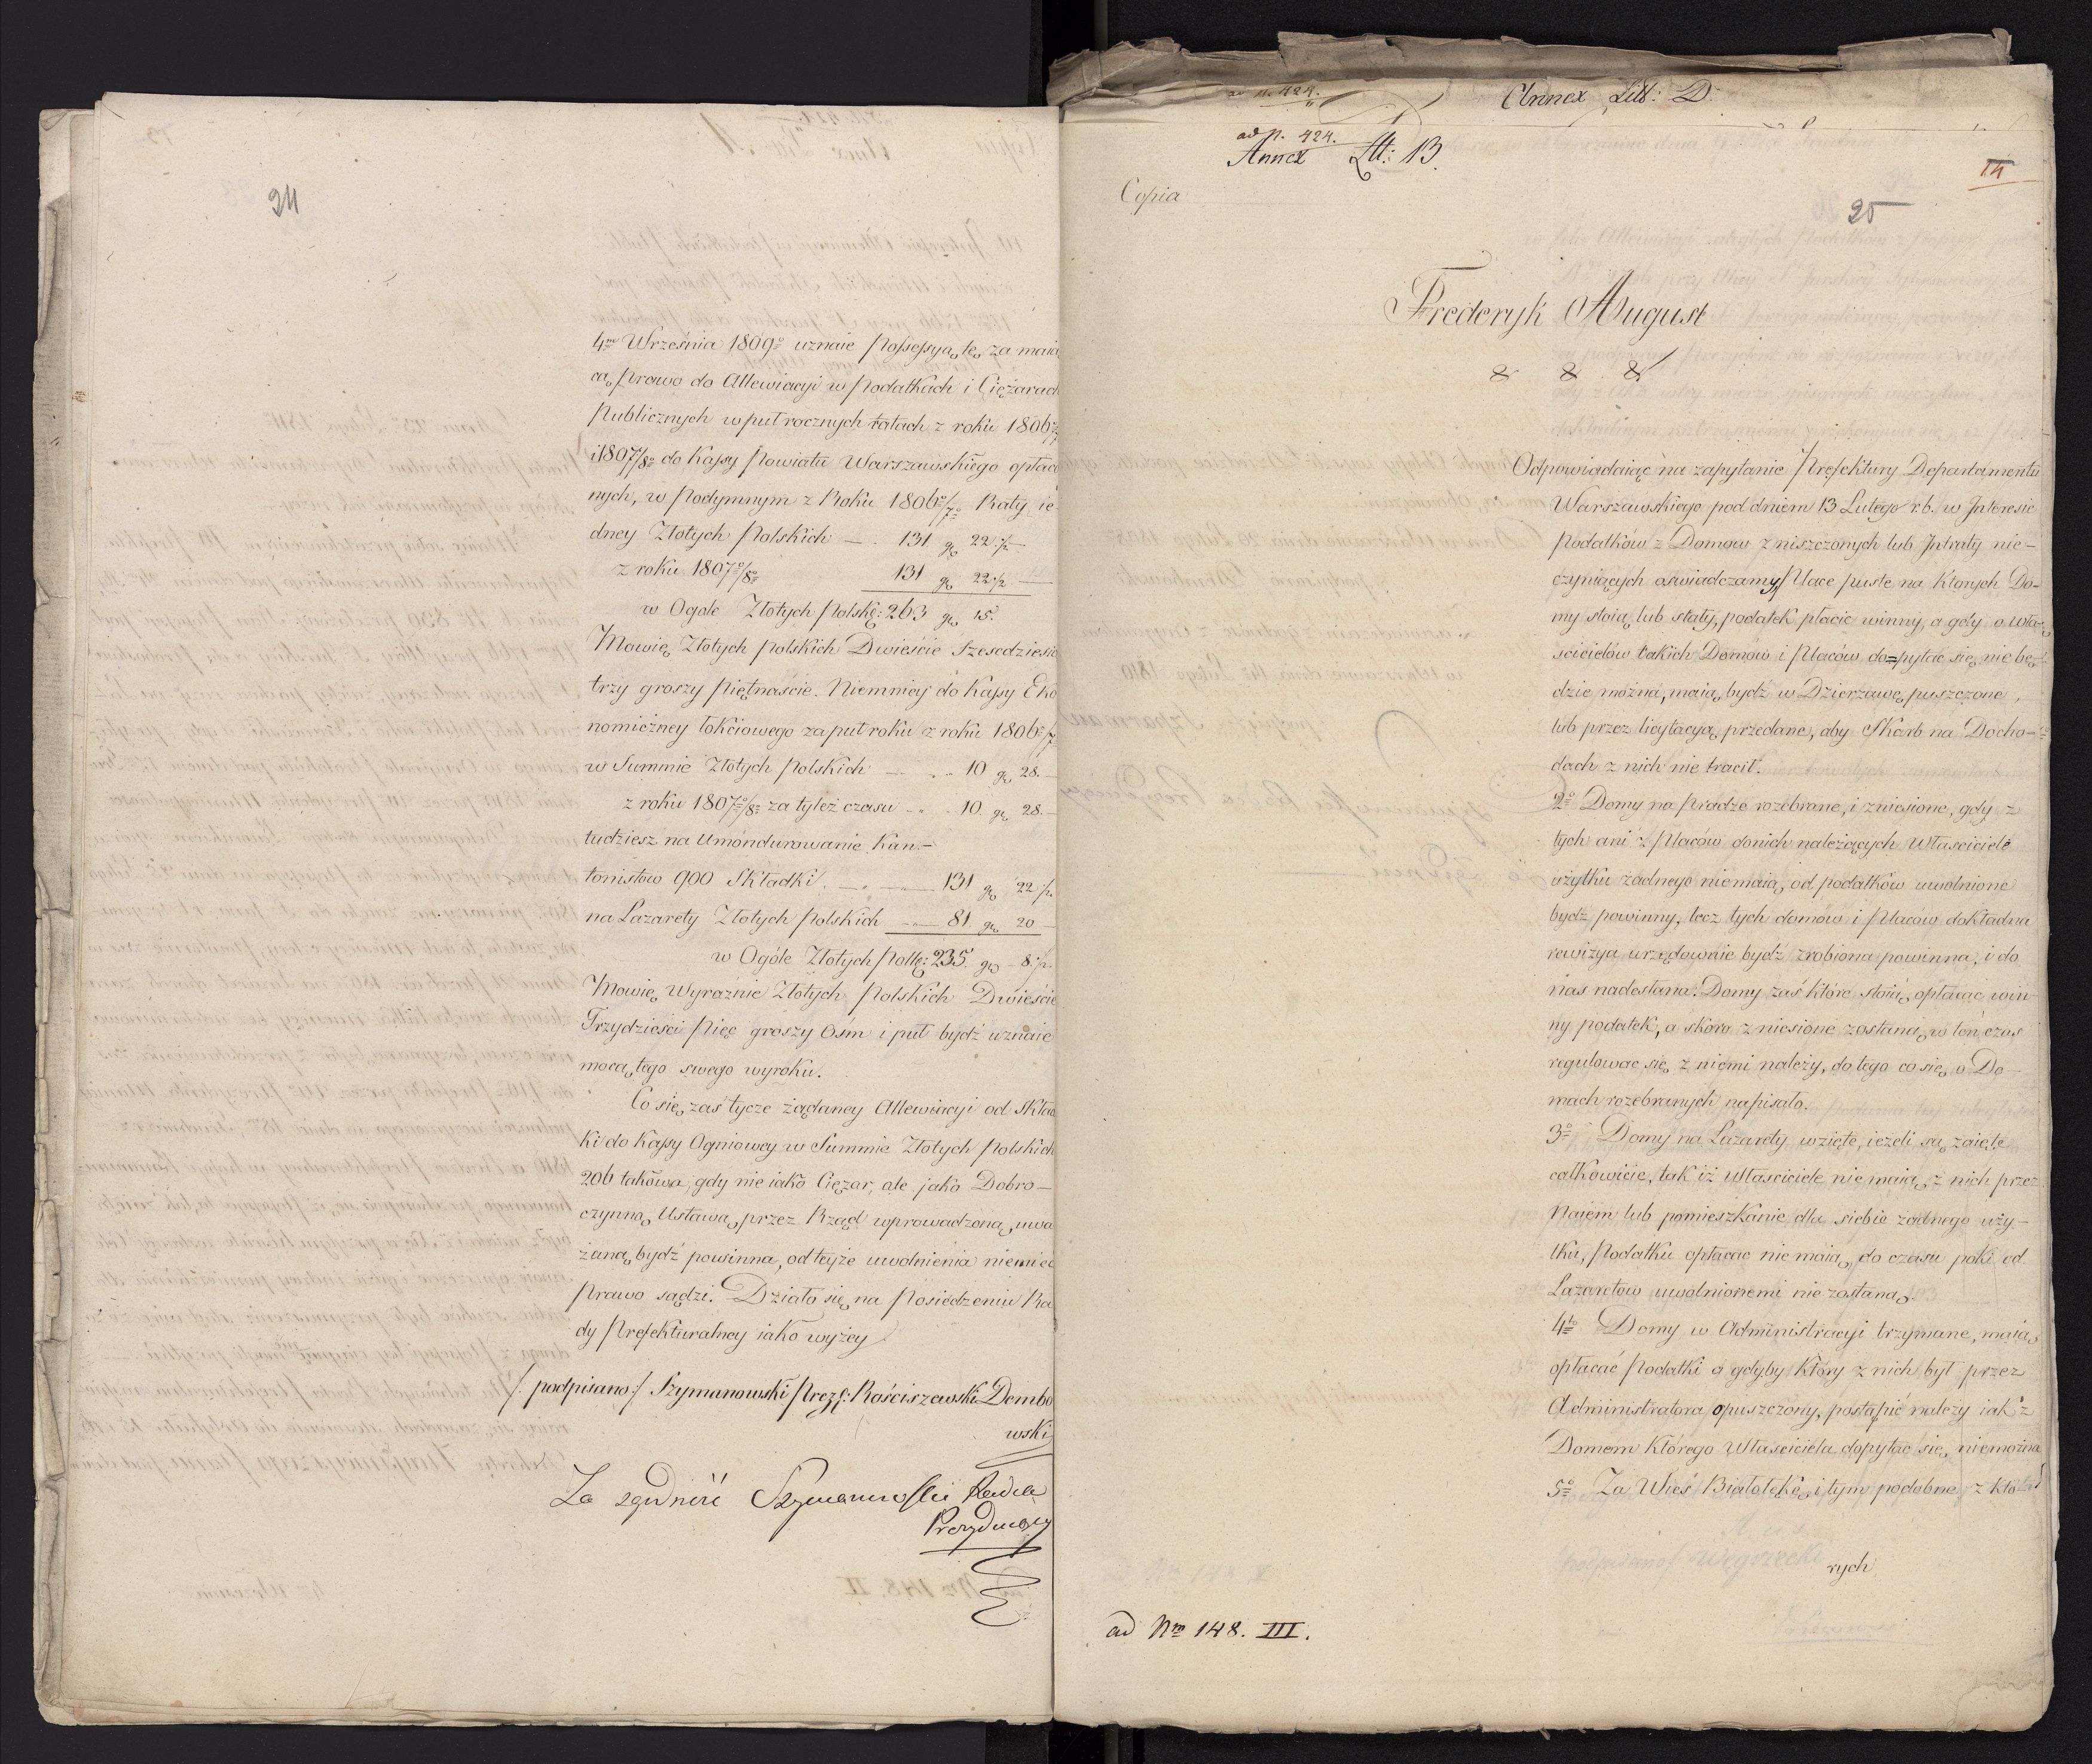 24
4º Września 1809º uznaie Possessyą tę za maią
cą prawo do Allewiacyi w Podatkach i Ciężarach
Publicznych w pułrocznych ratach z roku 1806º/7
i 1807º/8º do Kassy Powiatu Warszawskiego opłaco
nych, w Podymnym z Roku 1806º/7º Raty ie
dney Złotych Polskich — . 131 gr 22 ½ —
z roku 1807º/8º 131 gr 22 ½ —
w Ogole Złotych Polsk: 263 gr 15.
Mowię Złotych Polskich Dwieście Szescdziesią
trzy groszy Piętnaście. Niemniey do Kassy Eko
nomiczney łokciowego za puł roku z roku 1806º/7
w Summie Złotych Polskich — . . 10 gr 28. —
z roku 1807º/8º za tyleż czasu - . . 10. gr 28. —
tudziesz na Umondurowanie Kan-
tonistow 900 Składki . — . — 131 gr 22 ½
na Lazarety Złotych Polskich — 81 gr 20 —
w Ogóle Złotych Polk: 235 gr - 8 ½.
Mowię Wyraźnie Złotych Polskich Dwieście
Trzydzieści Pięc groszy Ośm i puł bydź uznaie
mocą tego swego wyroku.
Co się zaś tycze żądaney Allewiacyi od Skład
ki do Kassy Ogniowey w Summie Złotych Polskich
206 takowa, gdy nie iako Ciężar, ale jako Dobro-
czynną Ustawą przez Rząd wprowadzoną, uwa
żaną bydź powinna, od teyże uwolnienia niemieć
Prawo sądzi. Działo się na Posiedzeniu Ra
dy Prefekturalney iako wyżey
/: podpisano :/ Szymanowski Prezs: Rościszewski Dembo
wski
Za zgodność Szymanowski Radca
Prezyduiący
ad n. 424.
Annex Litt: D.
ad n. 424.
Annex Ltt: B.
14
Copia
25
Frederyk August
& & &
Odpowiadaiąc na zapytanie Prefektury Departamentu
Warszawskiego pod dniem 13 Lutego r.b. w Interesie
Podatków z Domow zniszczonych lub Intraty nie-
czyniących oswiadczamy, Place puste na ktorych Do-
my stoią lub stały, podatek płacic winny, a gdy o wła-
scicielów takich Domów i Placów do=pytać się nie bę
dzie można, maią bydź w Dzierzawę puszczone,
lub przez licytacyą przedane, aby Skarb na Docho-
dach z nich nie tracił.
2º Domy na Pradze rozebrane, i zniesione, gdy z
tych ani z Placów donich należących Własciciele
użytku żadnego niemaią, od podatków uwolnione
bydz powinny, lecz tych domów i Placów dokładna
rewizya urzędownie bydź zrobiona powinna, i do
nas nadesłana. Domy zaś które stoią, opłacac win-
ny podatek, a skoro zniesione zostaną, w ten czas
regulowac się z niemi należy, do tego co się o Do-
mach rozebranych napisało.
3º Domy na Lazarety wzięte, ieżeli są zaięte
całkowicie, tak iż Własciciele nie maią z nich przez
Naiem lub pomieszkanie dla siebie żadnego uży-
tku, Podatku opłacac nie maią, do czasu poki od
Lazaretow uwolnionemi nie zostaną.
4to Domy w Administracyi trzymane, maią
opłacać Podatki a gdyby Który z nich był przez
Administratora opuszczony, postąpić należy iak z
Domem Którego Własciciela dopytac się niemożna
5º Za Wieś Białołękę i tym podobne, z któ
rych
ad Nro 148. III.